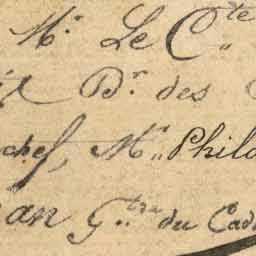 Mr. Le Cte
Dr. des
chef, Mr. Phila
an Gtre du Cad